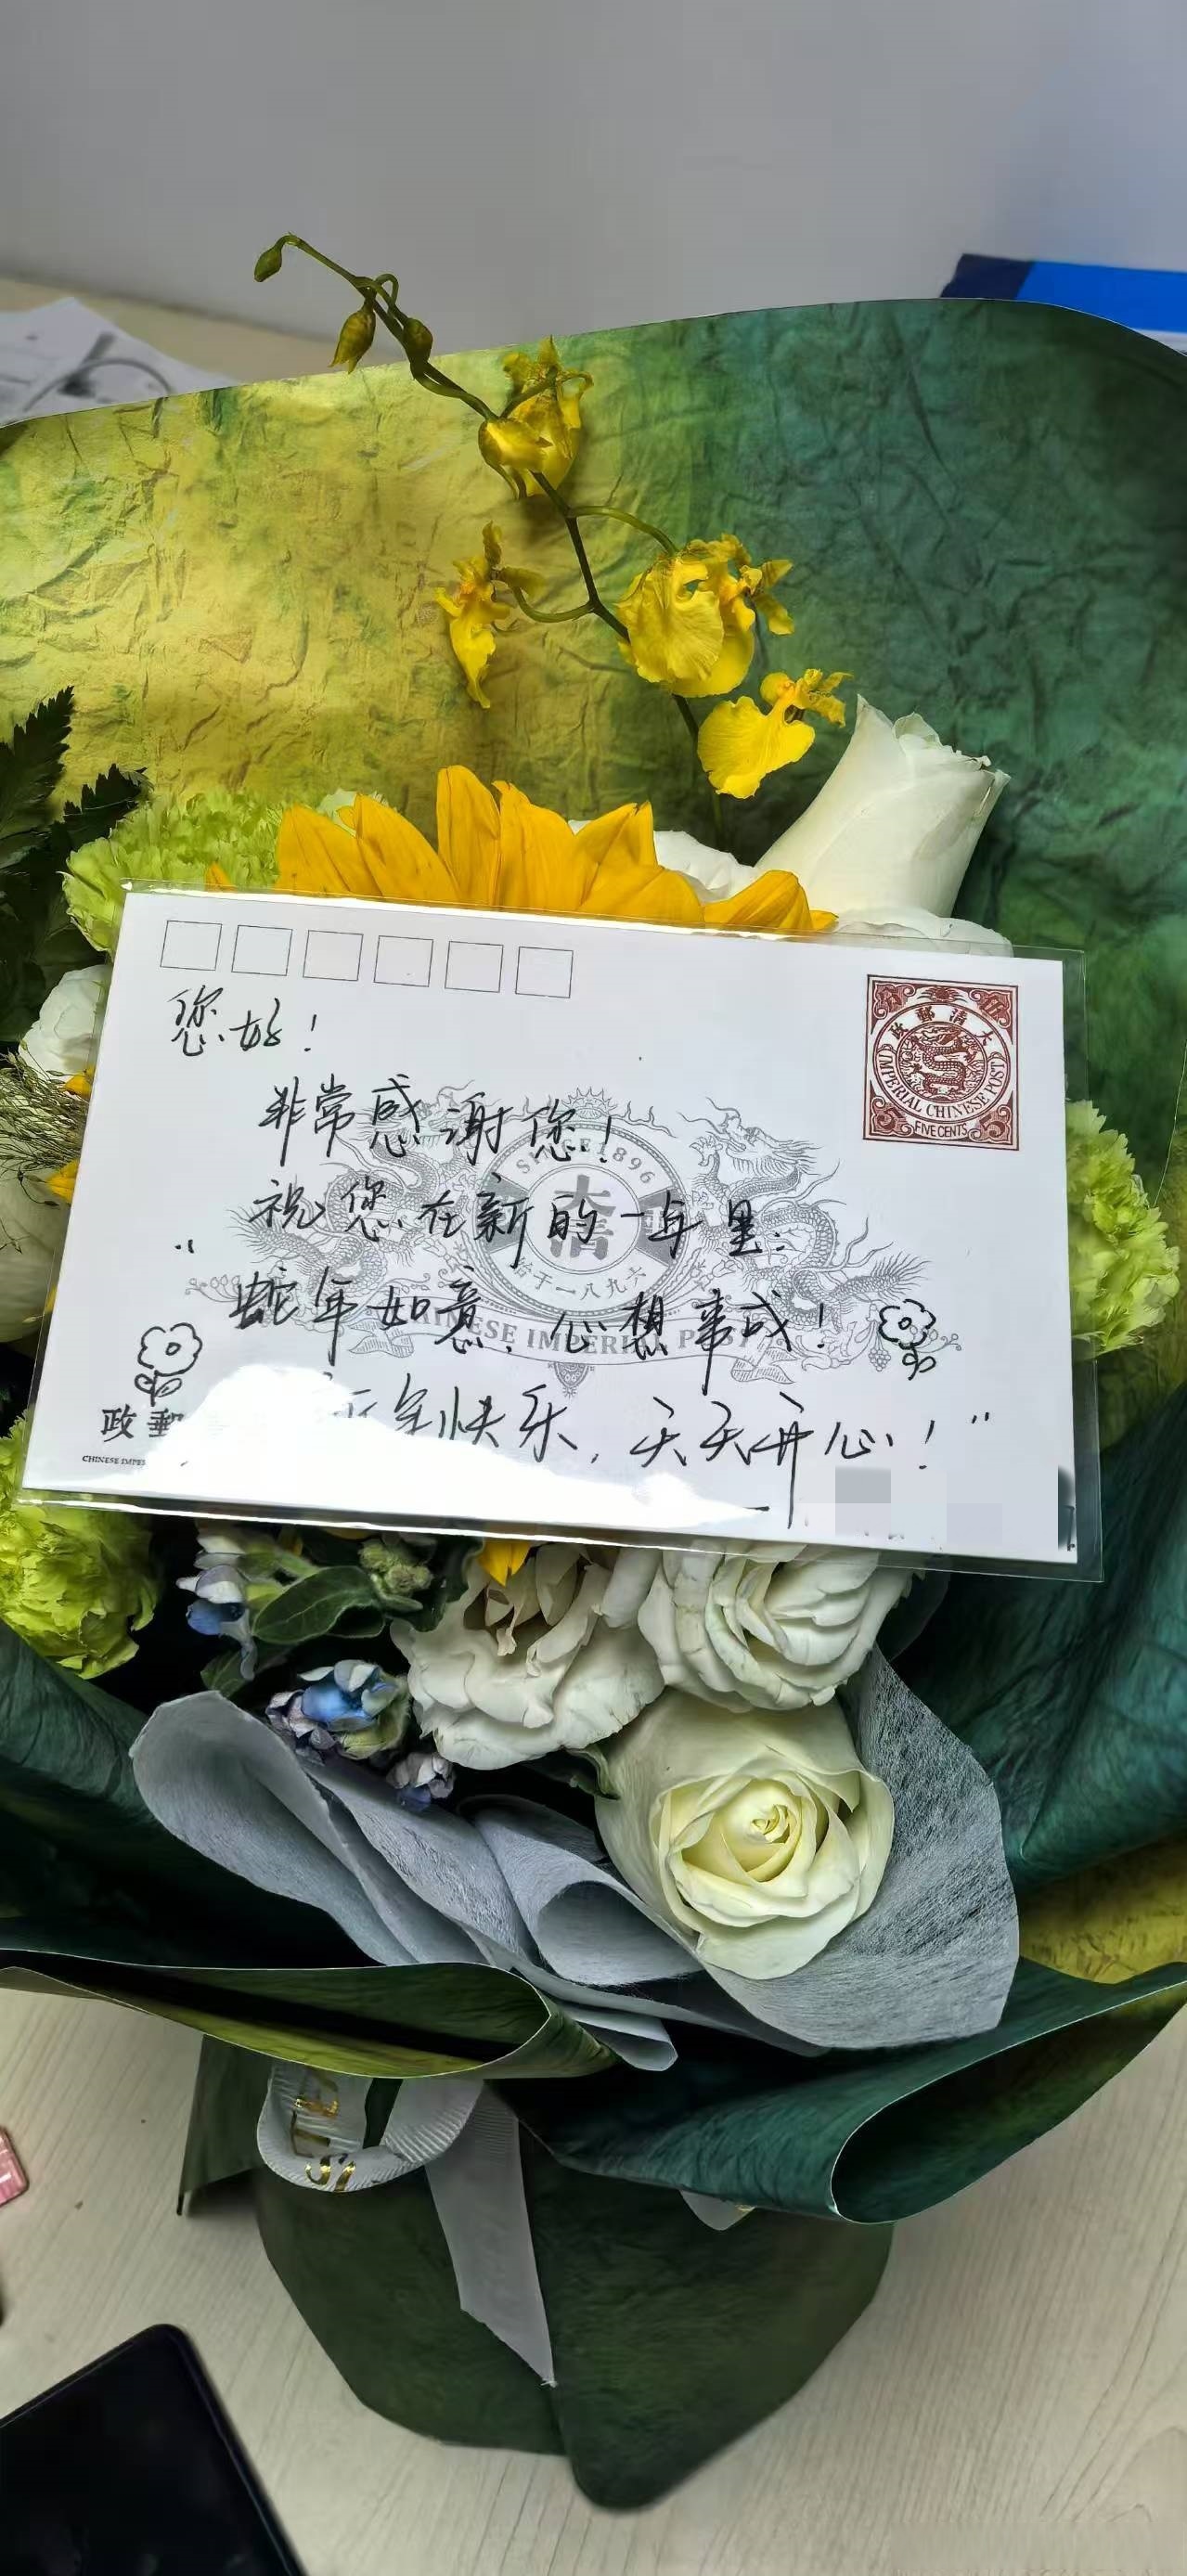 您好！
大清郵政
IMPERIAL CHINESE POST
5 FIVE CENTS 5
非常感谢您！
SINCE 1896
祝您在新的一年里：
大清
始于一八九六
“蛇年如意，心想事成！
CHINESE IMPERIAL POST
年快乐，天天开心！”
政郵
CHINESE IMPE